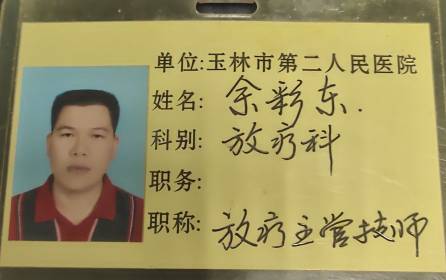 单位:玉林市第二人民医院
姓名:余彩东.
科别:放疗科
职务:
职称:放疗主管技师